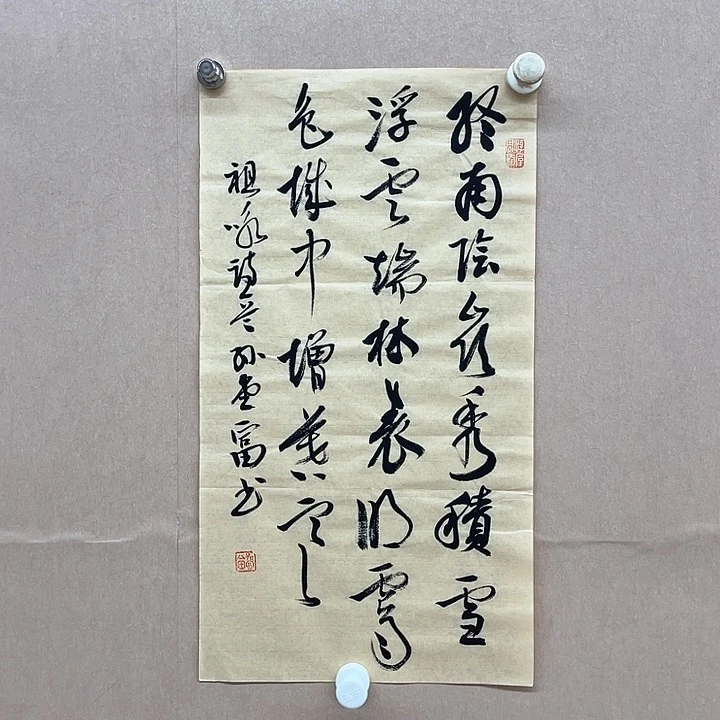 終南陰嶺秀積雪
浮雲端林表明霽
色城中增暮寒
祖咏詩 孙 富书